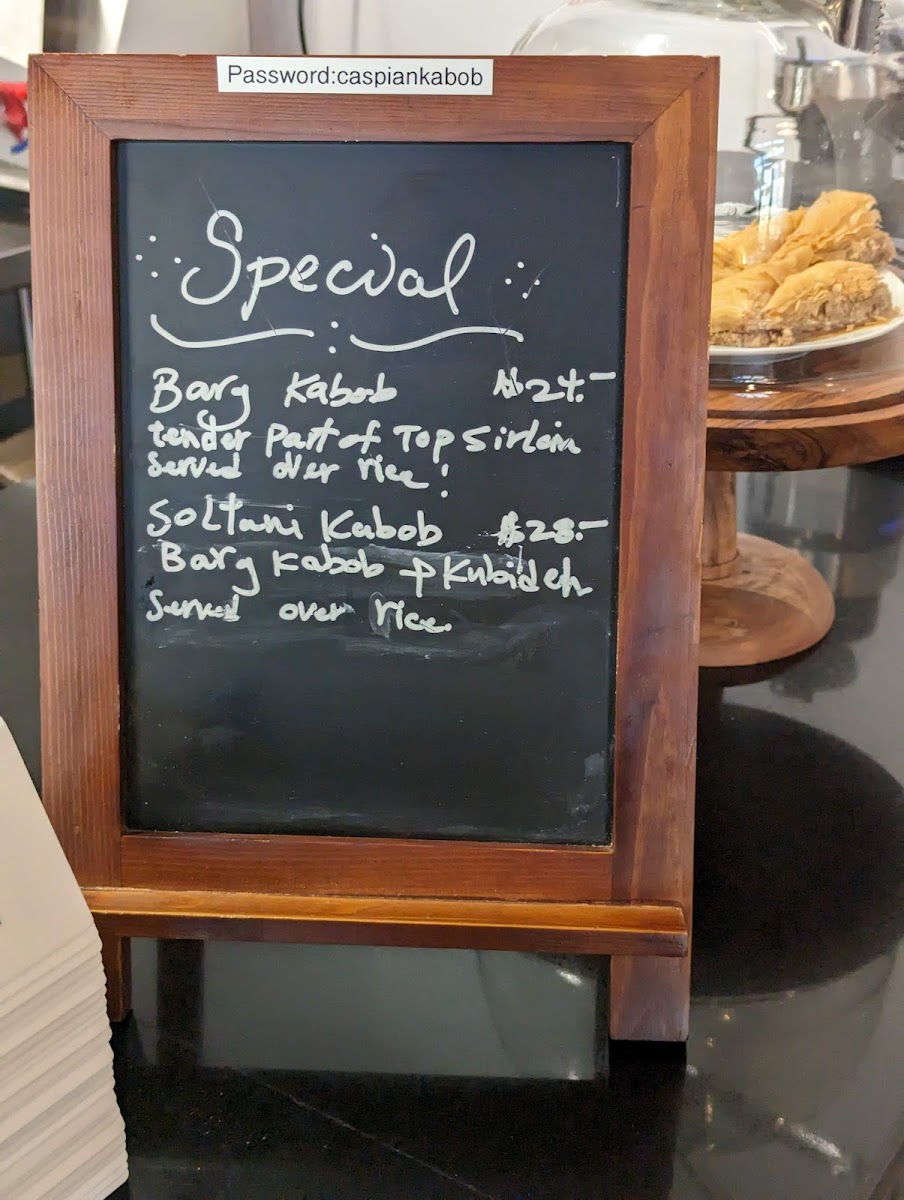 Password:caspiankabob
Special
Barg Kabob $24.-
tender part of Top Sirloin
Served over rice!
Soltani Kabob $28.-
Barg Kabob + Kubideh
Served over rice.